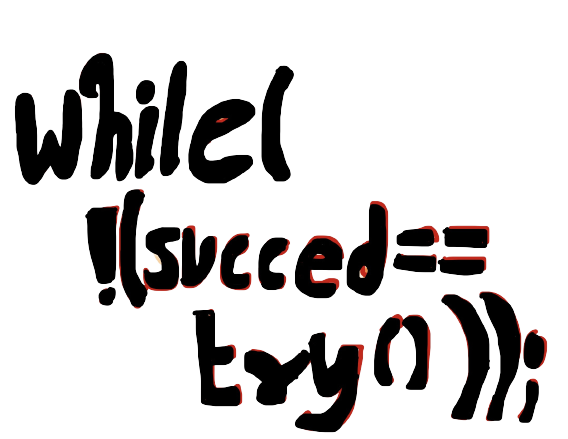 while(
!(succed==
try()));